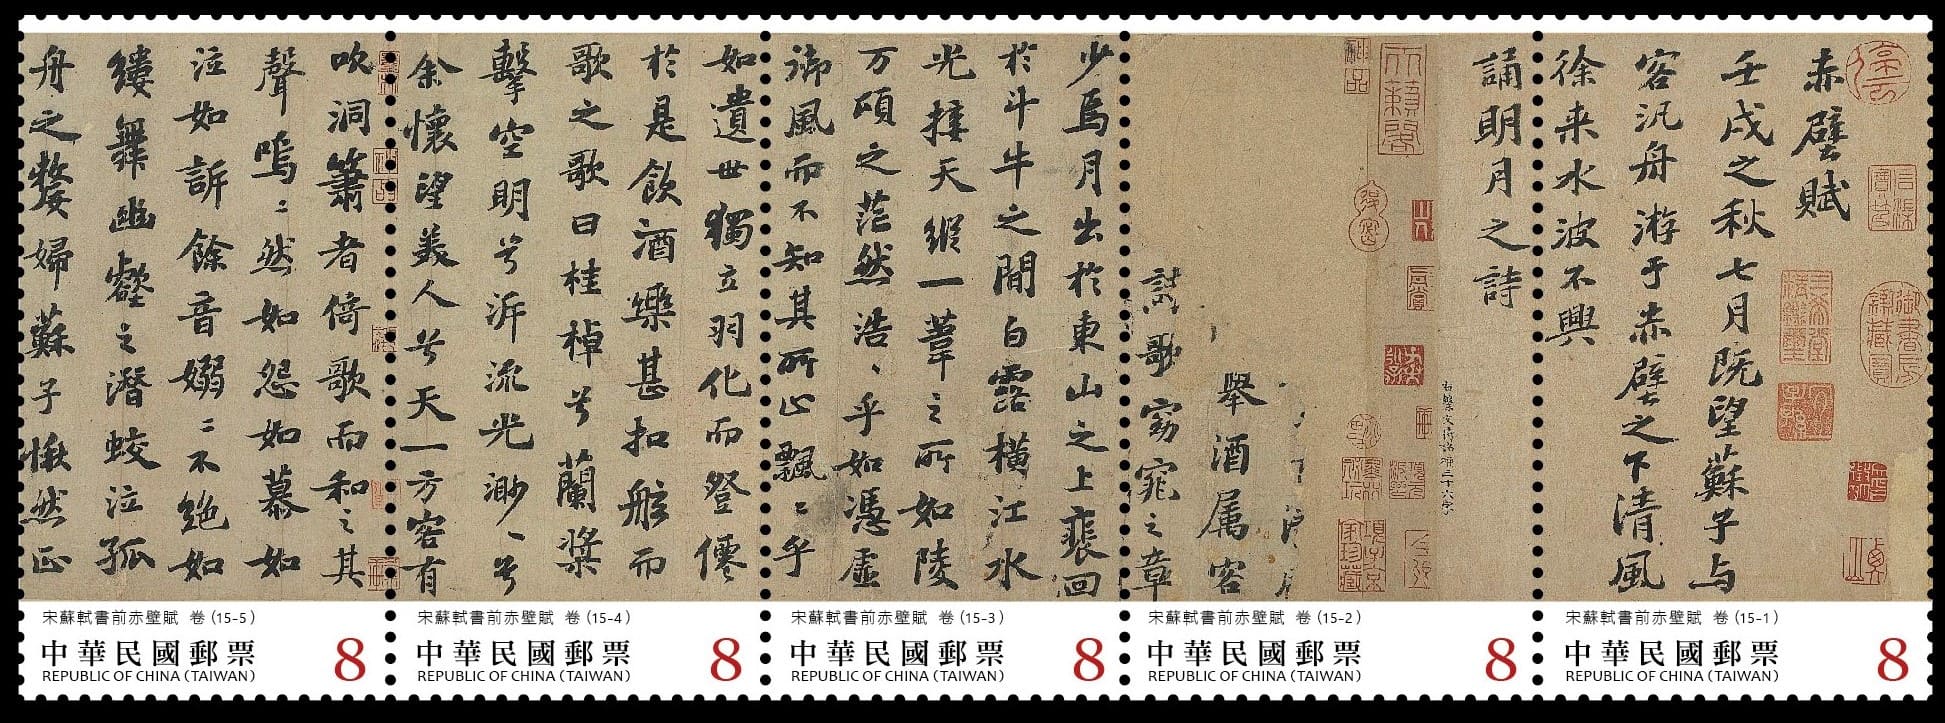 赤壁賦
壬戌之秋七月既望蘇子与
客汎舟游于赤壁之下清風
徐来水波不興
誦明月之詩
舉酒属客
歌窈窕之章
少焉月出於東山之上裵回
於斗牛之間白露橫江水
光接天縱一葦之所如陵
万頃之茫然浩、乎如馮虛
御風而不知其所止飄〻乎
如遺世獨立羽化而登僊
於是飲酒樂甚扣舷而
歌之歌曰桂棹兮蘭槳
擊空明兮泝流光渺、兮
余懷望美人兮天一方客有
吹洞簫者倚歌而和之其
聲嗚〻然如怨如慕如
泣如訴餘音嫋〻不絕如
縷舞幽壑之潛蛟泣孤
舟之嫠婦蘇子愀然正
石渠寶笈
御書房鑑藏寶
三希堂精鑑璽
宜子孫
神品
項子京家珍藏
宋蘇軾書前赤壁賦 卷 (15-5)
中華民國郵票 8
REPUBLIC OF CHINA (TAIWAN)
宋蘇軾書前赤壁賦 卷 (15-4)
中華民國郵票 8
REPUBLIC OF CHINA (TAIWAN)
宋蘇軾書前赤壁賦 卷 (15-3)
中華民國郵票 8
REPUBLIC OF CHINA (TAIWAN)
宋蘇軾書前赤壁賦 卷 (15-2)
中華民國郵票 8
REPUBLIC OF CHINA (TAIWAN)
宋蘇軾書前赤壁賦 卷 (15-1)
中華民國郵票 8
REPUBLIC OF CHINA (TAIWAN)